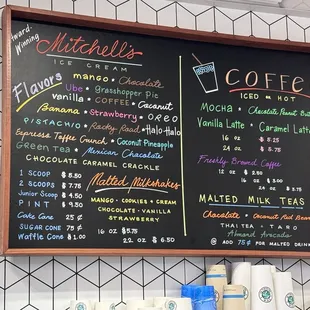 Award-Winning
Mitchell's
ICE CREAM
Flavors
mango · Chocolate
Ube · Grasshopper Pie
vanilla · COFFEE · Coconut
Banana · Strawberry · OREO
PISTACHIO · Rocky Road · Halo-Halo
Espresso Toffee Crunch · Coconut Pineapple
Green Tea · Mexican Chocolate
CHOCOLATE CARAMEL CRACKLE
1 SCOOP $5.50
2 SCOOPS $7.75
Junior Scoop $4.50
PINT $9.50
Cake Cone 25¢
SUGAR CONE 75¢
Waffle Cone $1.00
Malted Milkshakes
MANGO · COOKIES + CREAM
CHOCOLATE · VANILLA
STRAWBERRY
16 oz $5.75
22 oz $6.50
COFFE
ICED or HOT
MOCHA · Chocolate Peanut Butt
Vanilla Latte · Caramel Latte
16 oz $5.25
24 oz $5.75
Freshly Brewed Coffee
12 oz $2.50
16 oz $3.00
24 oz $3.75
MALTED MILK TEAS
Chocolate · Coconut Red Bean
THAI TEA · TARO
Almond Avocado
@ ADD 75¢ FOR MALTED DRINK